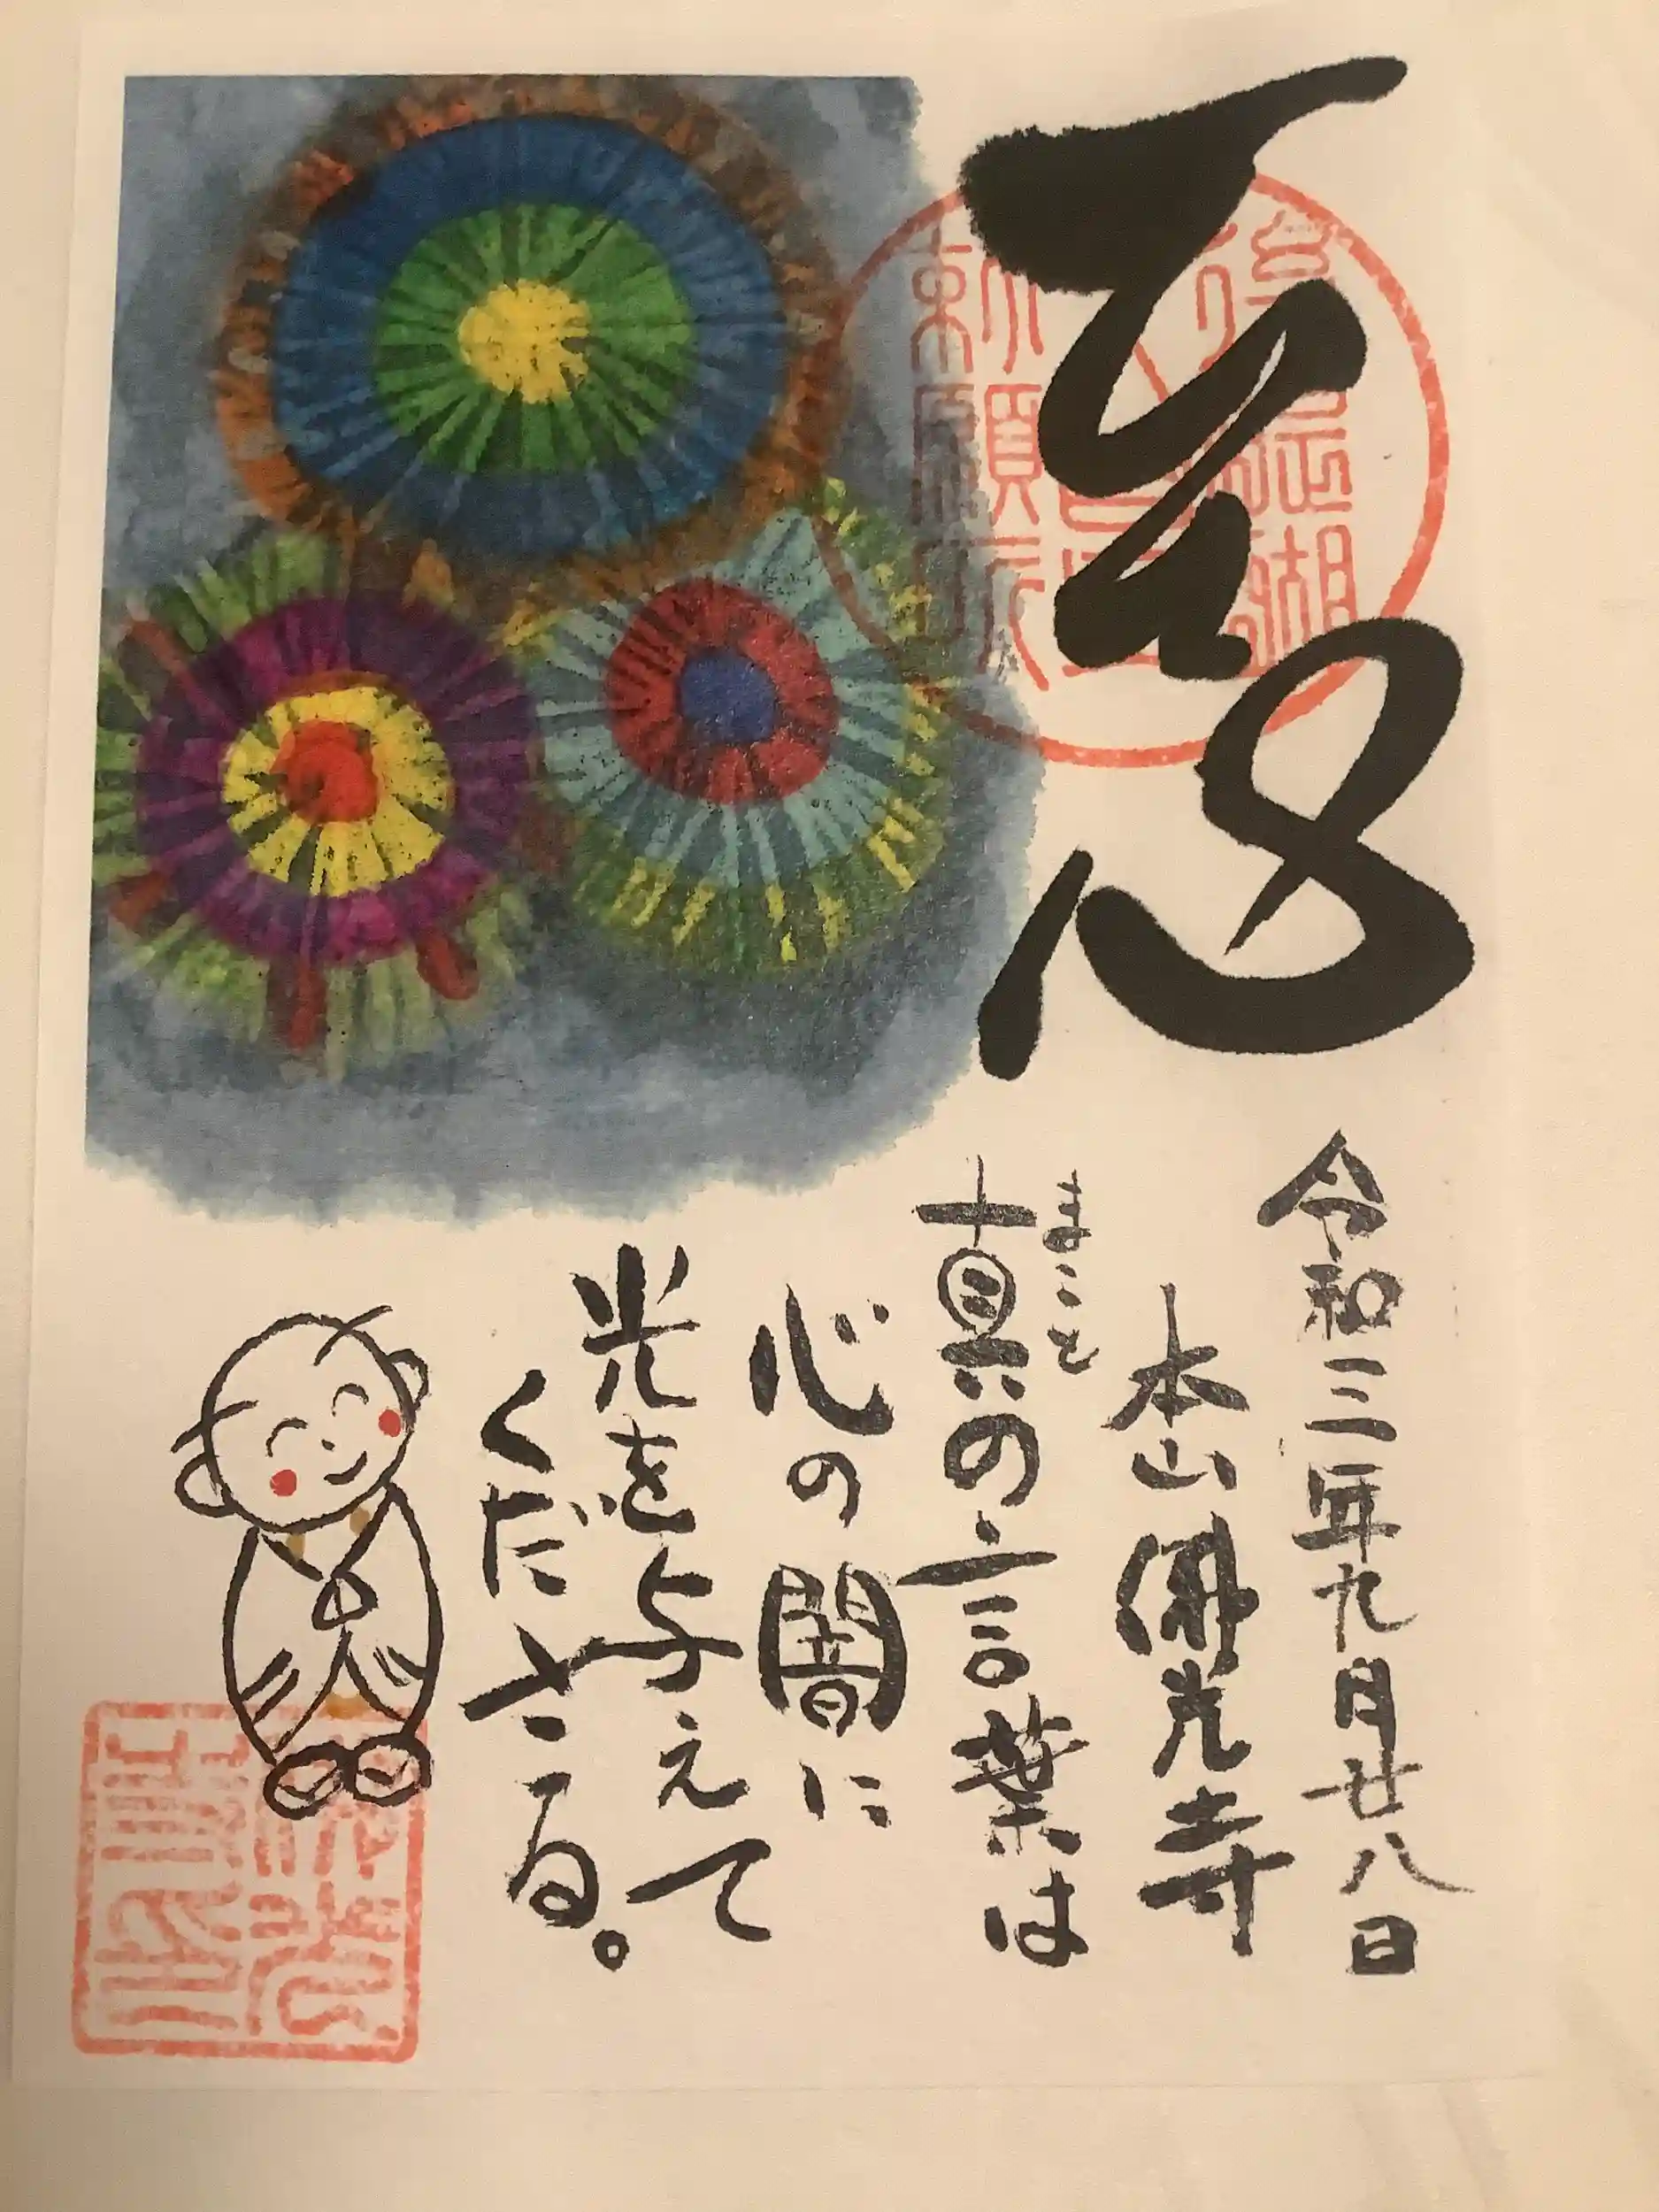 至心
令和三年九月廿八日
本山佛光寺
まこと
真の言葉は
心の闇に
光を与えて
くださる。